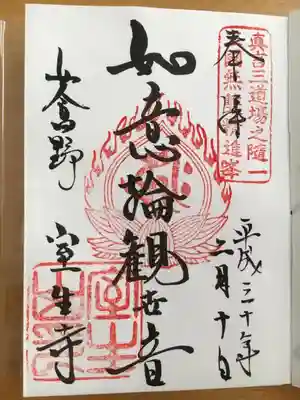 真言三道場之随一
奉拝
平成三十年
二月十日
如意輪観世音
女人高野
室生寺